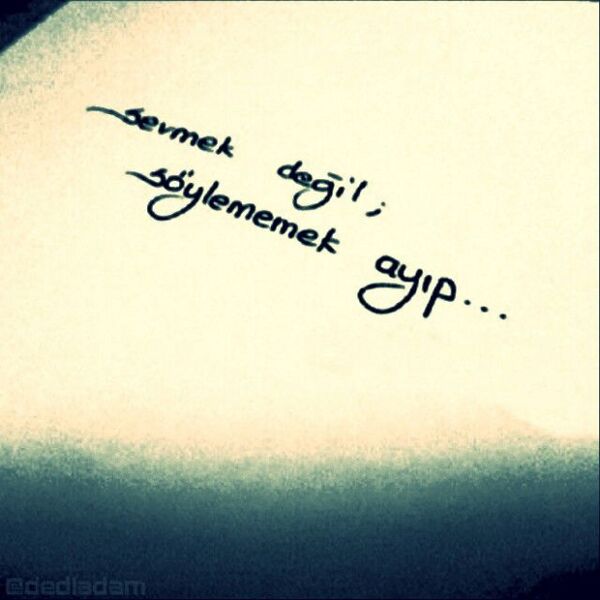 sevmek değil;
söylememek ayıp...
@dedladam